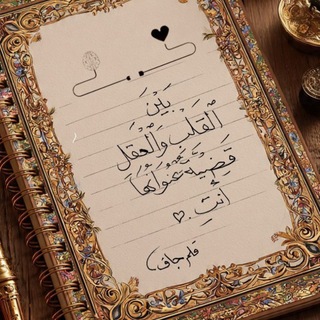 بَيْنَ
الْقَلْبِ وَالْعَقْلِ
قَضِيَّة عُنْوَانُهَا
أَنْتِ
قلم جاف